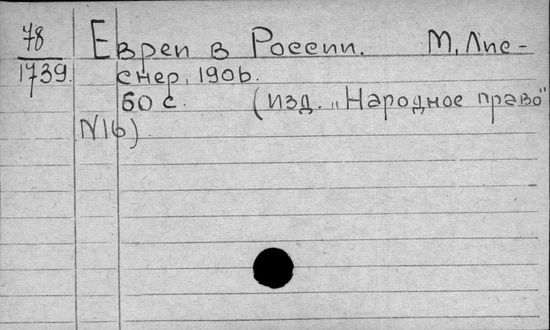 78 Евреи в России. М, Лис-
1739. снер, 1906.
60 с. (изд. „Народное право"
N16)